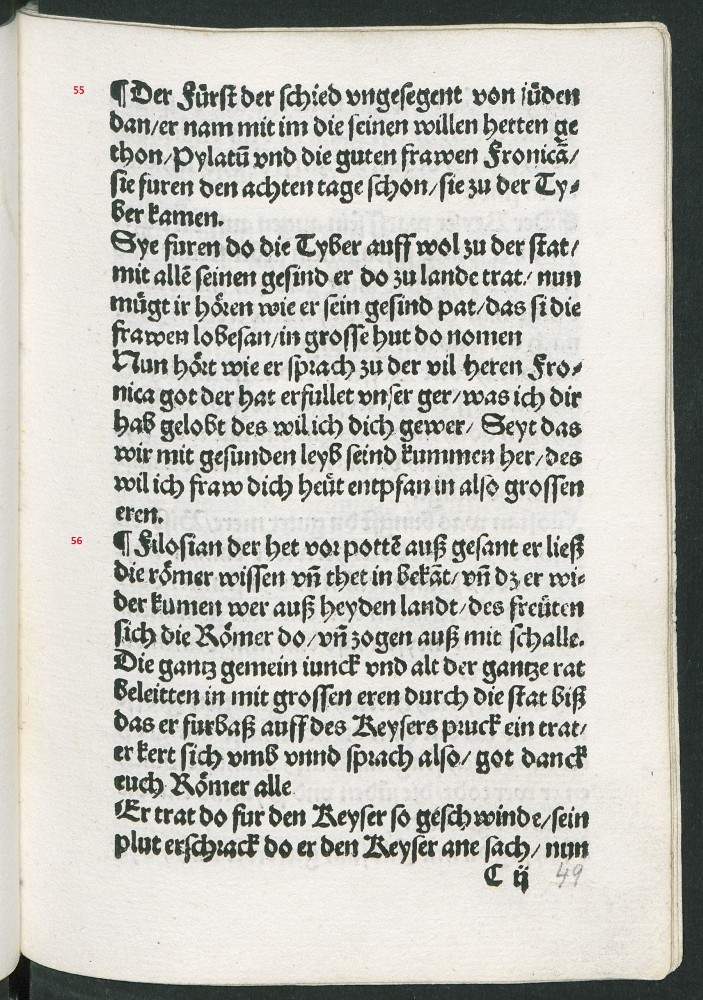 55 ¶ Der Fürst der schied vngesegent von jüden
dan/er nam mit im die seinen willen hetten ge
thon/Pylatū vnd die guten frawen Fronicā/
sie furen den achten tage schon/sie zu der Ty⸗
ber kamen.
Sye furen do die Tyber auff wol zu der stat/
mit allē seinen gesind er do zu lande trat/ nun
mügt ir hören wie er sein gesind pat/das si die
frawen lobesan/in grosse hut do nomen
Nun hört wie er sprach zu der vil heren Fro⸗
nica got der hat erfüllet vnser ger/was ich dir
hab gelobt des wil ich dich gewer/ Seyt das
wir mit gesunden leyb seind kummen her/des
wil ich fraw dich heüt entpfan in also grossen
eren.
56 ¶ Filosian der het vor pottē auß gesant er ließ
die römer wissen vñ thet in bekāt/vñ dz er wi⸗
der kumen wer auß heyden landt/des freüten
sich die Römer do/vñ zogen auß mit schalle.
Die gantz gemein iunck vnd alt der gantze rat
beleitten in mit grossen eren durch die stat biß
das er furbaß auff des Keysers pruck ein trat/
er kert sich vmb vnnd sprach also/ got danck
euch Römer alle
Er trat do fur den Keyser so geschwinde/sein
plut erschrack do er den Keyser ane sach/ nun
C ij 49